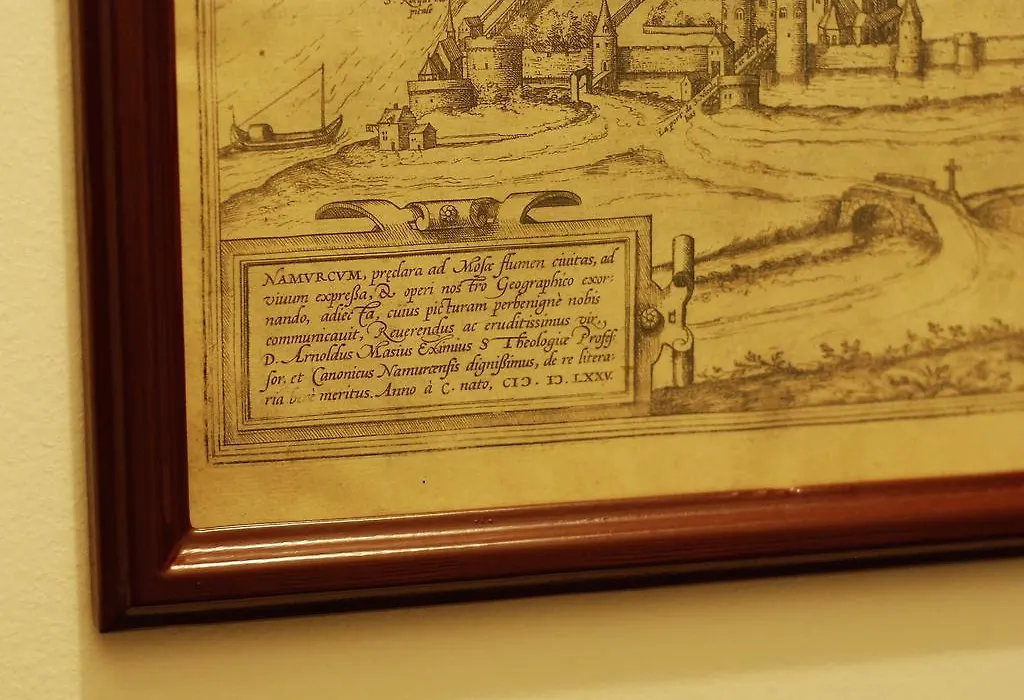 S. Roque
pitale
La port
NAMVRCVM, pręclara ad Mosæ flumen ciuitas, ad
viuum expreßa, & operi nostro Geographico exor:
nando, adiecta, cuius picturam perbenignè nobis
communicauit, Reuerendus ac eruditissimus vir,
D. Arnoldus Masius Eximius S Theologiæ Profes
sor, et Canonicus Namurcensis dignißimus, de re litera:
ria benè meritus. Anno à C. nato, CIƆ. IƆ. LXXV.